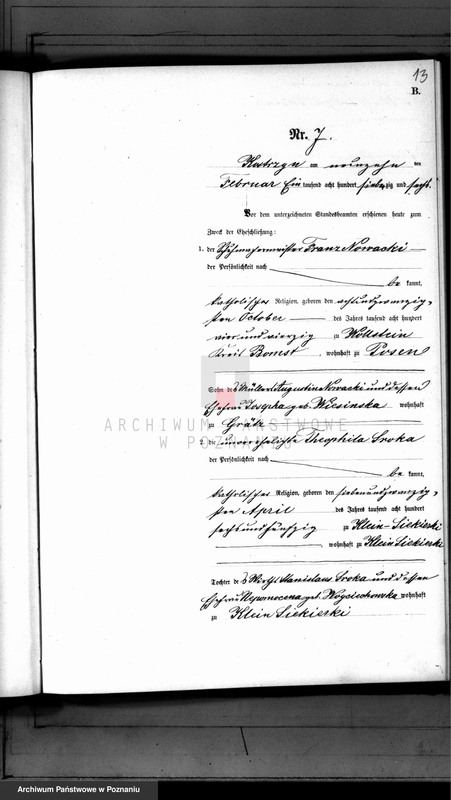 13
B.
Nr. 7.
Kostrzyn am neunzehn ten
Februar Ein tausend acht hundert siebenzig und sechs.
Vor dem unterzeichneten Standesbeamten erschienen heute zum
Zweck der Eheschließung:
1. der Schuhmachermeister Franz Nowacki
der Persönlichkeit nach
be kannt,
katholischer Religion, geboren den achtundzwanzig-
sten October des Jahres tausend acht hundert
vier und vierzig zu Wollstein
Kreis Bomst, wohnhaft zu Posen
Sohn des Müllers Augustin Nowacki und dessen
Ehefrau Josepha geb. Wiesinska wohnhaft
zu Grätz
2. die unverehelichte Theophila Sroka
der Persönlichkeit nach
be kannt,
katholischer Religion, geboren den siebenundzwanzig-
sten April des Jahres tausend acht hundert
sechs und fünfzig zu Klein-Siekierki
, wohnhaft zu Klein Siekierki
Tochter des Wirths Stanislaus Sroka und dessen
Ehefrau Nepomocena geb. Woyciechowska wohnhaft
zu Klein Siekierki
ARCHIWUM PAŃSTWOWE
W POZNANIU
Archiwum Państwowe w Poznaniu